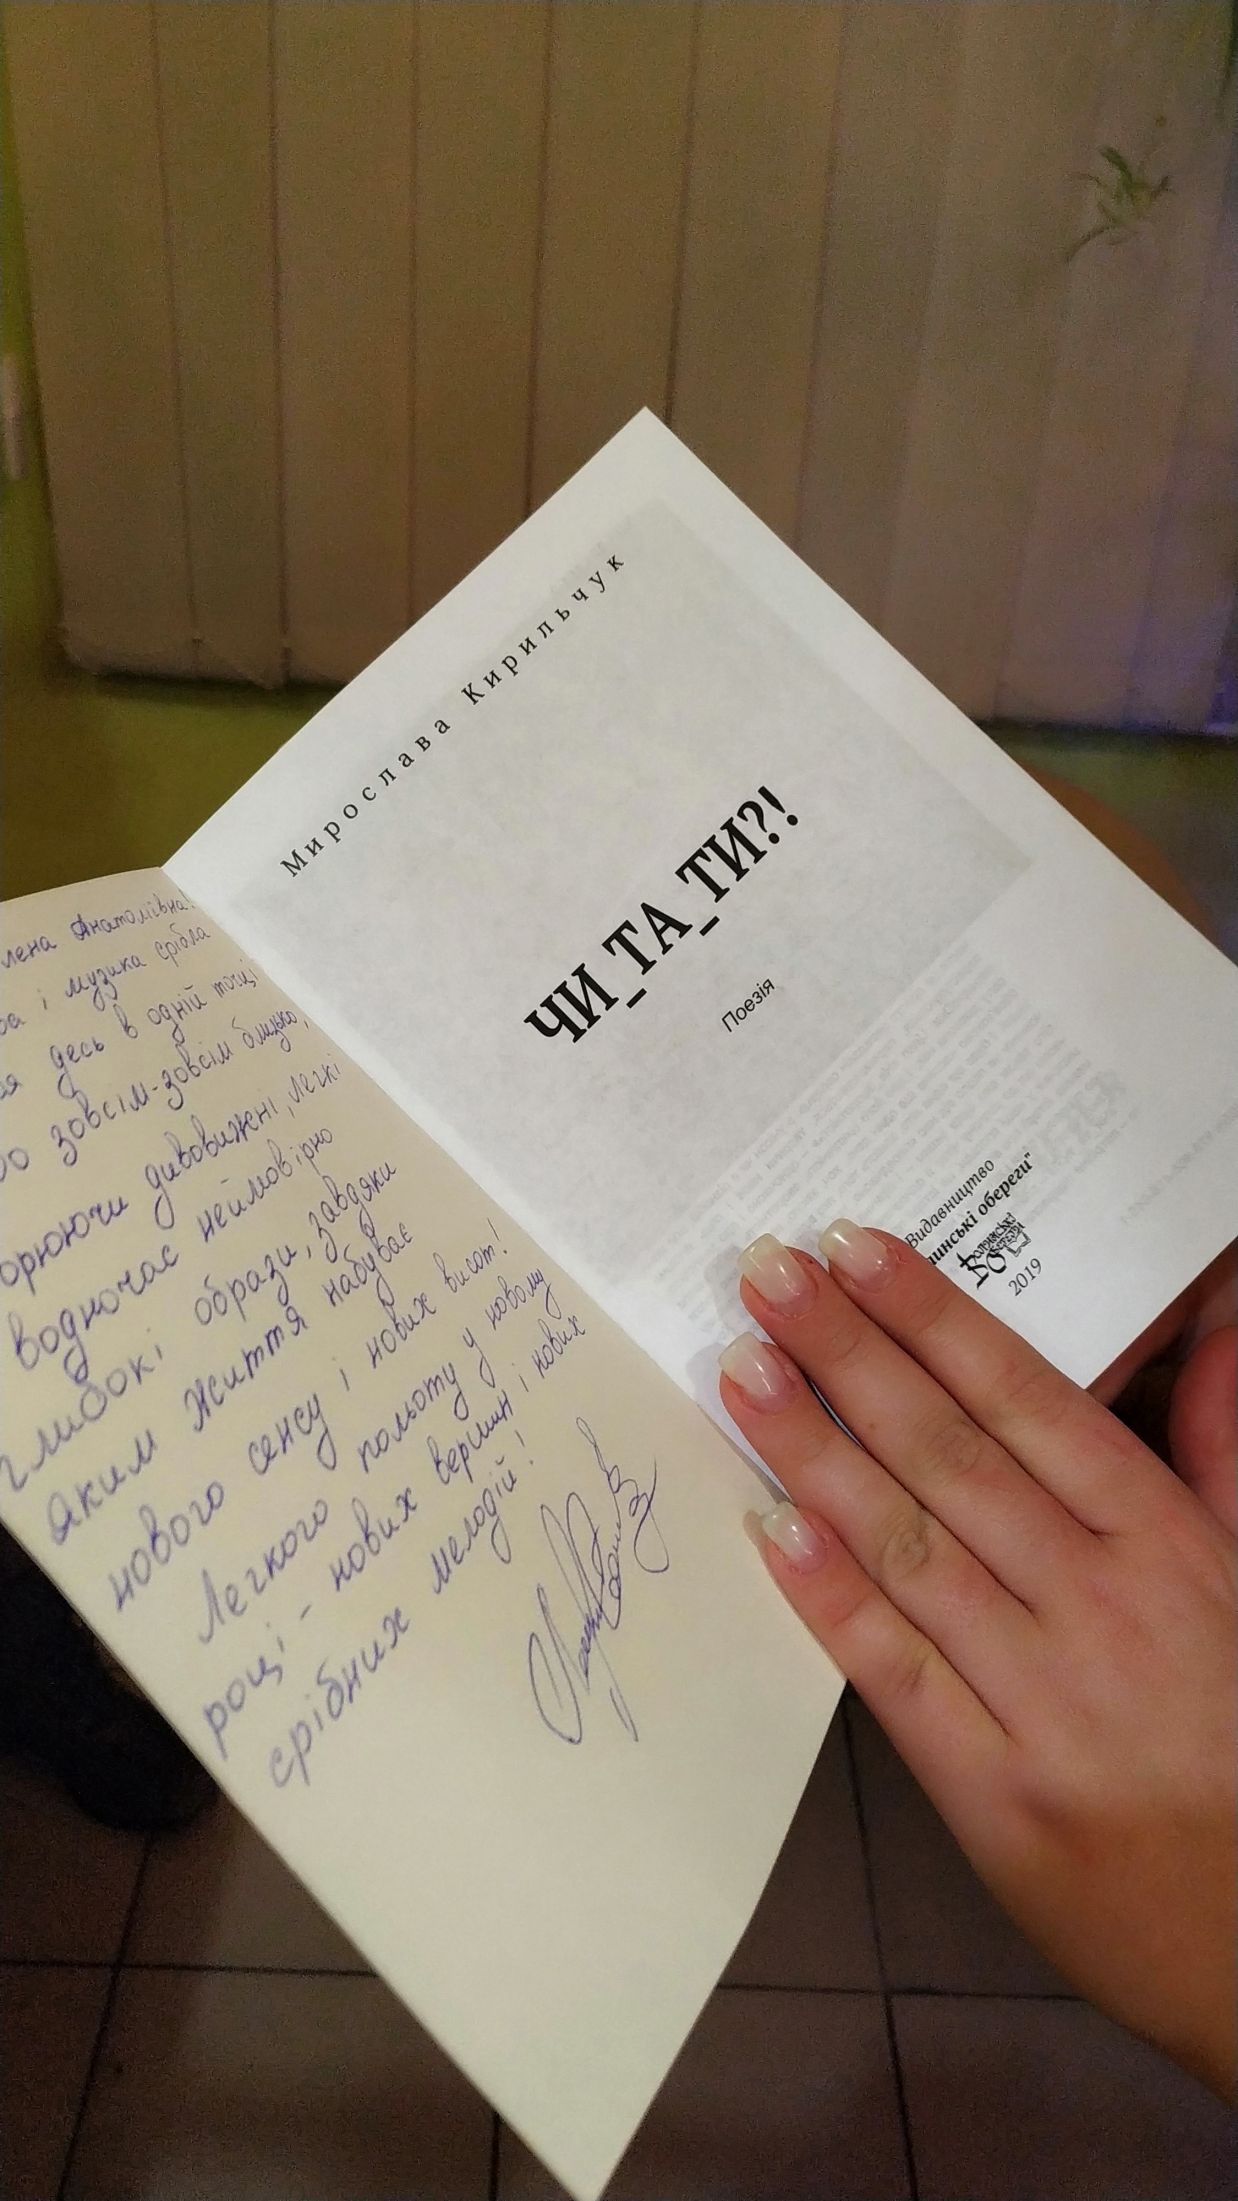 лена Анатоліївна!
ра і музика срібла
ся десь в одній точці
бо зовсім-зовсім близько,
орюючи дивовижні, легкі
й водночас неймовірно
глибокі образи, завдяки
яким життя набуває
нового сенсу і нових висот!
Легкого польоту у новому
році - нових вершин і нових
срібних мелодій!
Мирослава Кирильчук
ЧИ_ТА_ТИ?!
Поезія
Видавництво
линські обереги"
2019